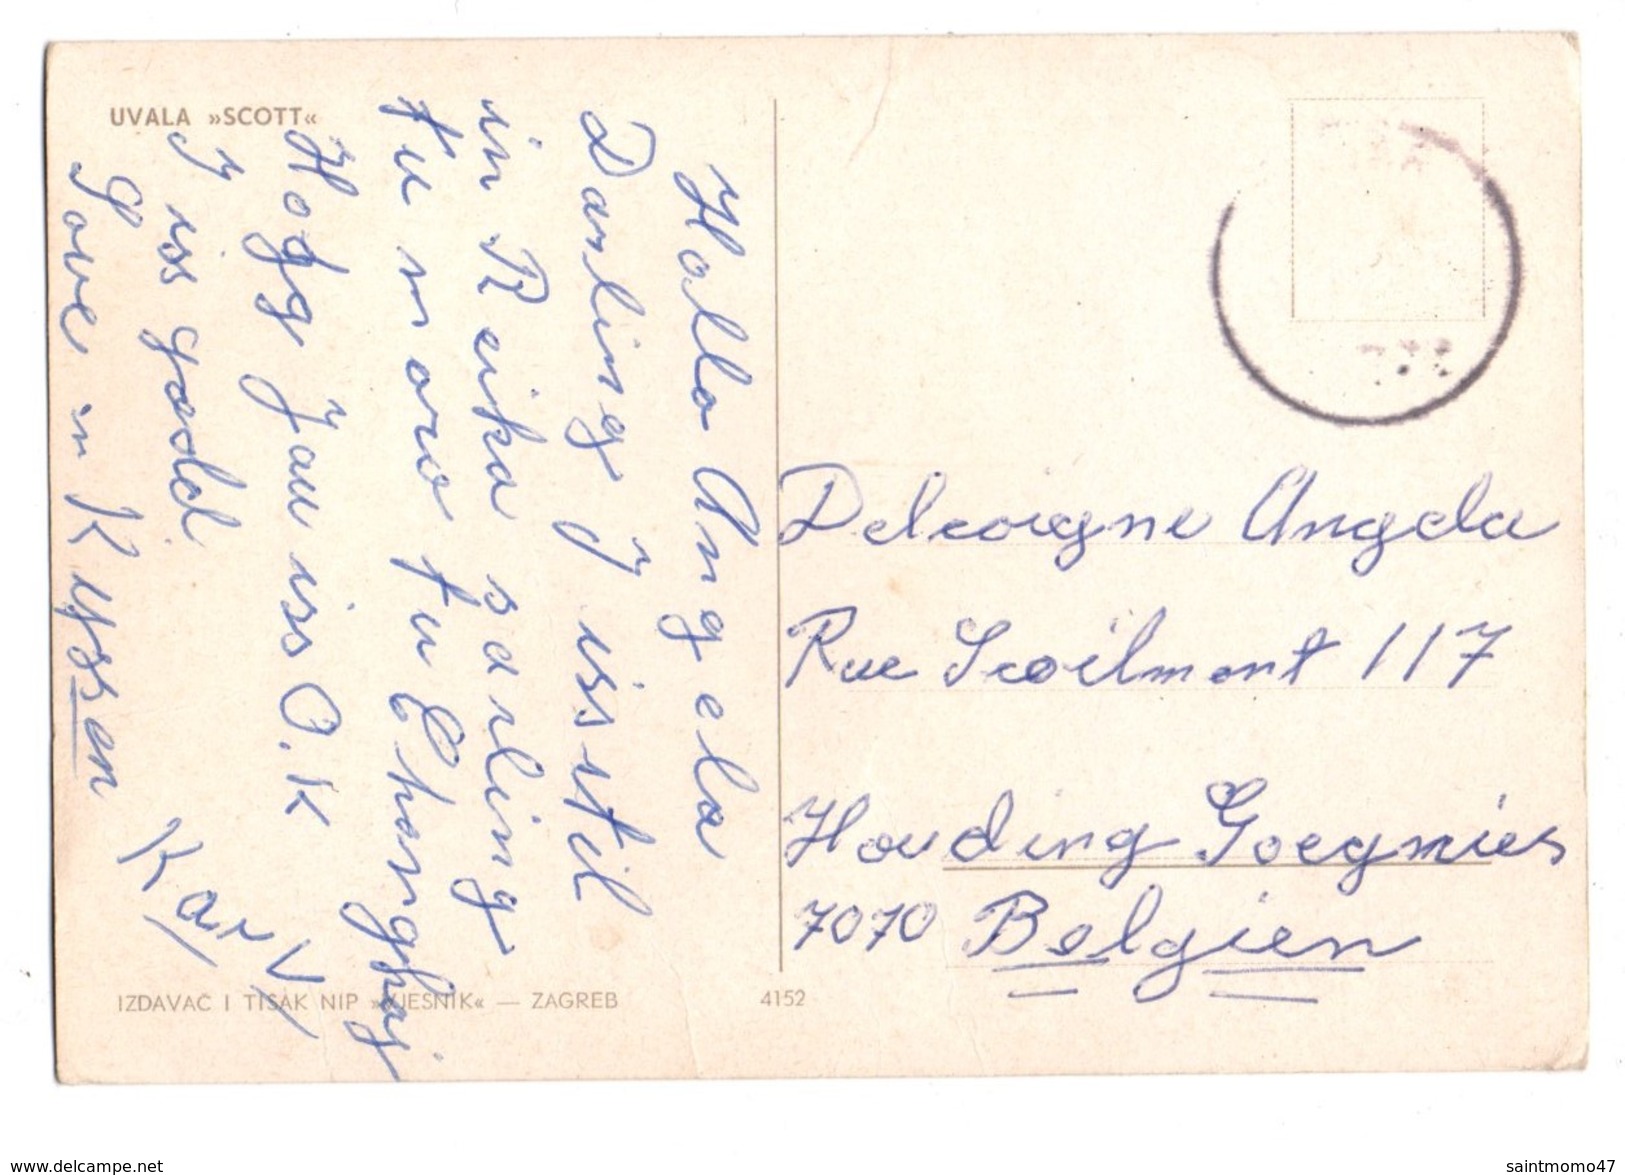 UVALA »SCOTT«
Hallo Angela
Darling J iss stil
in Reika sarling
tu moro tu Chonghaj
Hogg Jau iss O.K
J iss goodd.
Love in Kyssen
Karl
Delcoigne Angela
Rue Scoilmont 117
Houding Goegnies
7070 Belgien
IZDAVAČ I TISAK NIP »VJESNIK« — ZAGREB
4152
www.delcampe.net
saintmomo47